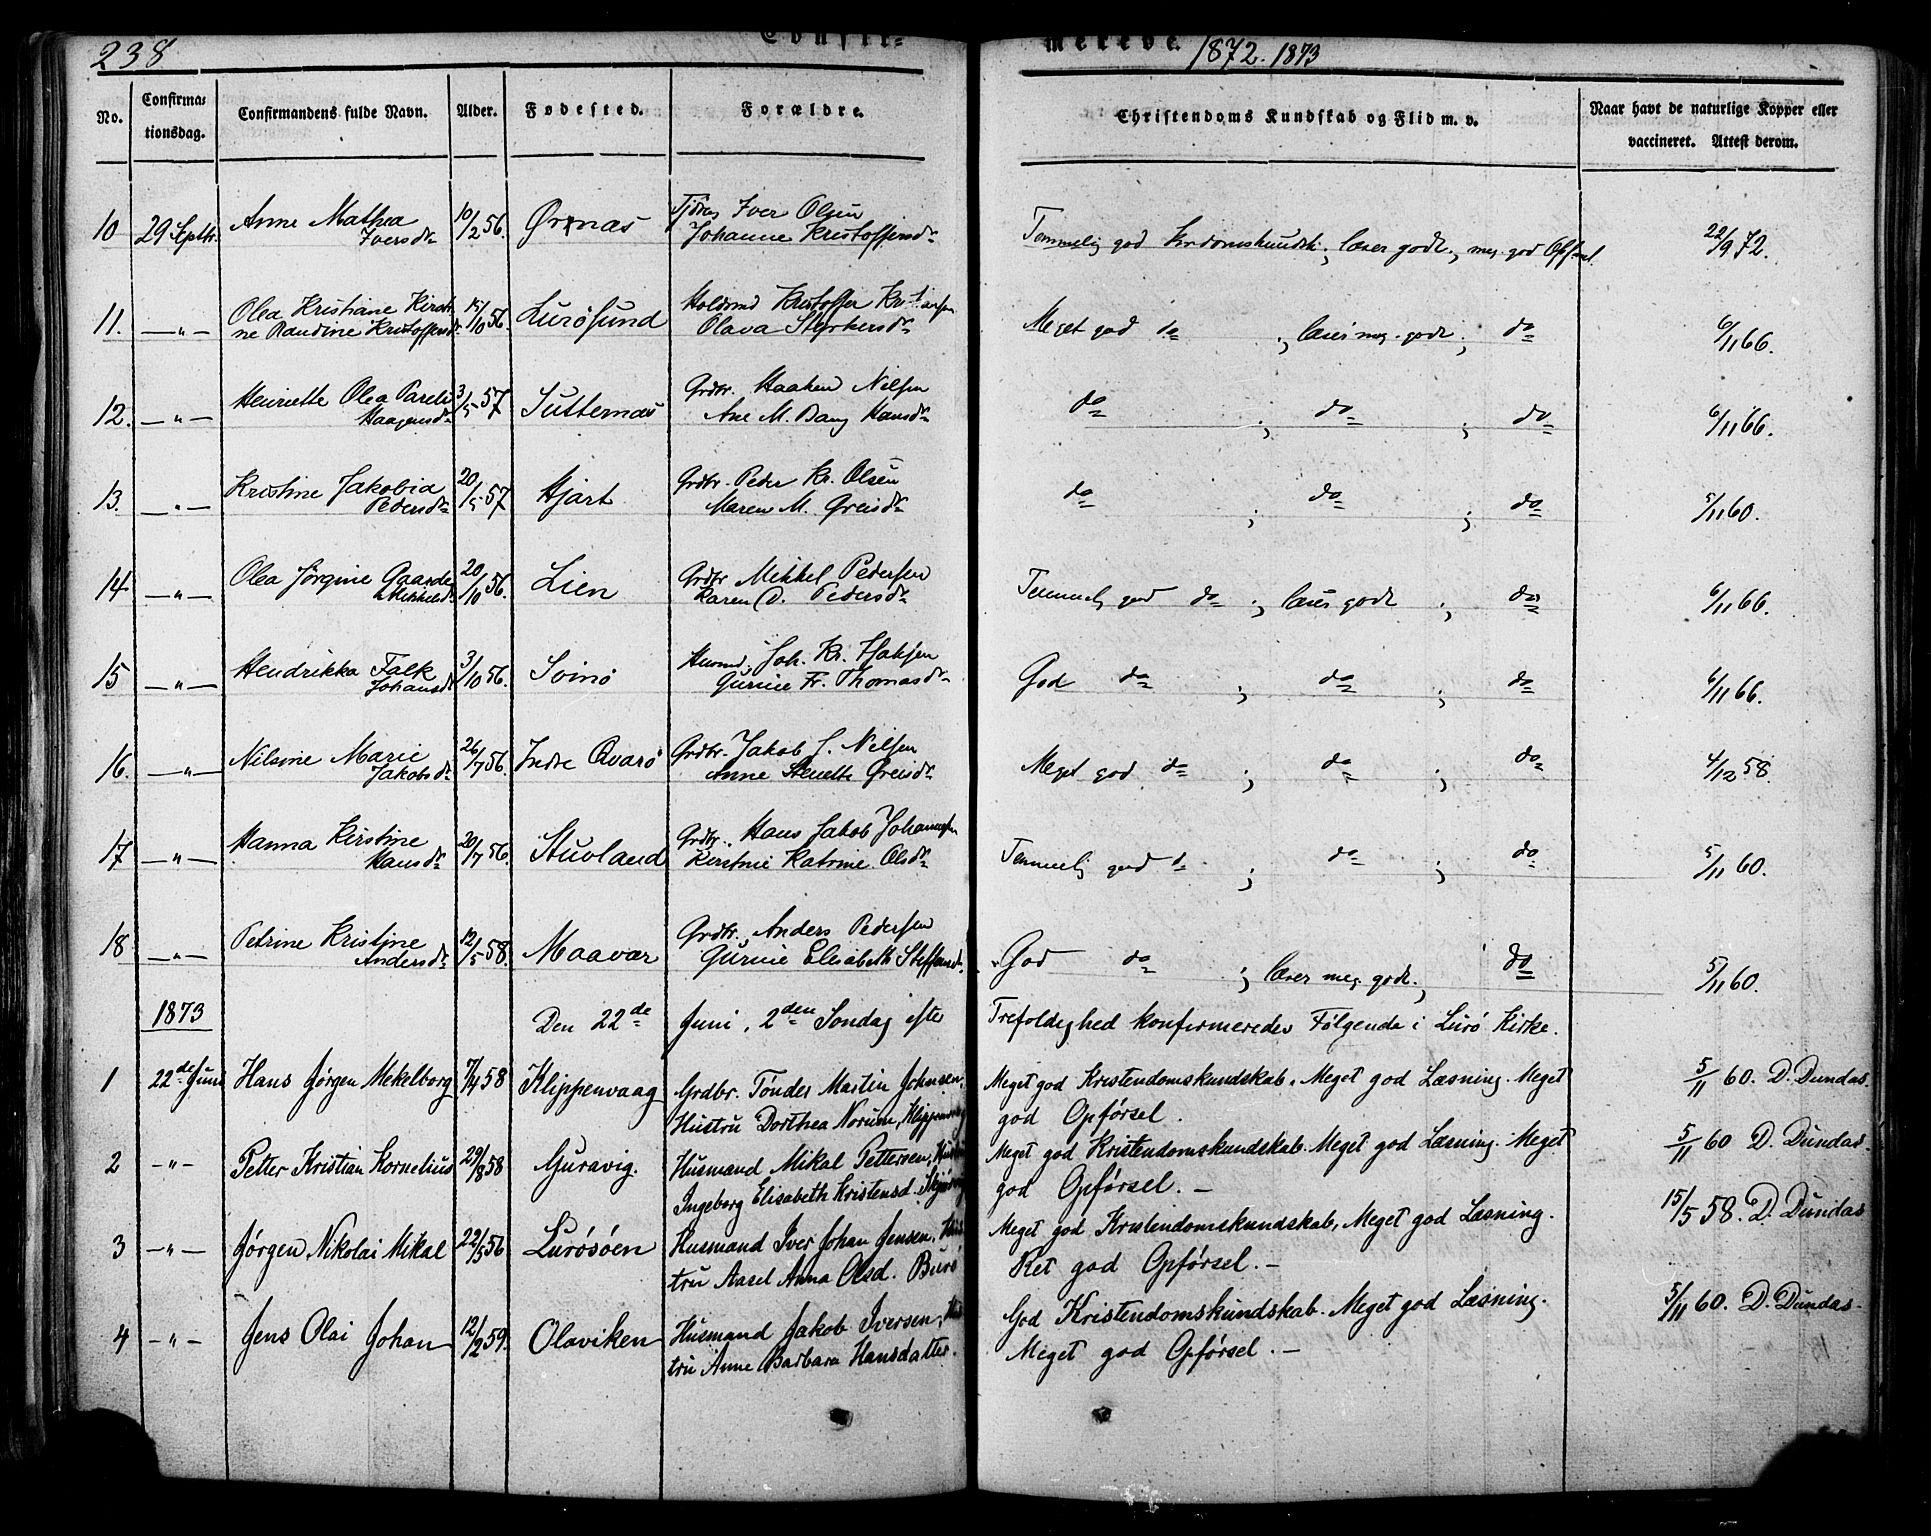 238
Confir-
merede. 1872. 1873
No.
Confirma-
tionsdag.
Confirmandens fulde Navn.
Alder.
Fødested.
Forældre.
Christendoms Kundskab og Flid m. v.
Naar havt de naturlige Kopper eller
vaccineret. Attest derom.
10 29 Septbr. Anne Mathea 10/2 56. Ørnæs Iver Olsen
Iversdr Johanne Kristoffersdr
Temmelig god ; læser godt ; meg. god Opførsel. 22/9 72.
11. —"— Olea Kristiane Kirsti- 15/10 56. Lurøsund Kristoffer Kristiansen
ne Randine Kristoffersdr Olava Styrkersdr
Meget god do ; læser meg. godt ; do 6/11 66.
12. —"— Henriette Olea Pareli 3/5 57 Sutternæs Grdbr. Haaken Nilsen
Haagensdr Ane M. Bang Hansdr
do ; do ; do 6/11 66.
13. —"— Kristine Jakobia 20/5 57 Hjart Grdbr. Peder Kr. Olsen
Pedersdr Maren M. Greisdr
do ; do ; do 5/11 60.
14 —"— Olea Jørgine Gaarder 20/10 56. Lien Grdbr Mikkel Pedersen
Mikkelsdr Karen D. Pedersdr
Temmelig god do ; læser godt ; do 6/11 66.
15 —"— Hendrikka Falk 3/10 56. Svinø Husmd. Joh. Kr.
Johansdr Gurine Fr. Thomasdr
God do ; do ; do 6/11 66.
16. —"— Nilsine Marie 26/7 56. Indre Qvarø Grdbr. Jakob J. Nilsen
Jakobsdr Anne Greisdr
Meget god do ; do ; do 4/12 58.
17 —"— Hanna Kirstine 20/7 56. Stuvland Grdbr. Hans Jakob Johannesen
Hansdr Kirstine Katrine Olsdr
Temmelig god do ; do ; do 5/11 60.
18 —"— Petrine Kristine 12/5 58. Maavær Grdbr. Anders Pedersen
Andersdr Gurine Elisabeth Steffensdr
God do ; læser meg. godt. ; do 5/11 60.
1873 Den 22de Juni, 2den Søndag efter Trefoldighed konfirmeredes Følgende i Lurø Kirke.
1 22de Juni Hans Jørgen Mekelborg 7/4 58 Klippenvaag Grdbr. Tønder Martin Johnsen,
Hustru Dorthea Norum, Klippenvaag
Meget god Kristendomskundskab. Meget god Læsning. Meget 5/11 60. D. Dundas.
god Opførsel.
2 —"— Petter Kristian Kornelius 29/8 58 Guravig. Husmand Mikal Pettersen, Hustru
Ingeborg Elisabeth Kristensd.
Meget god Kristendomskundskab. Meget god Læsning. Meget 5/11 60 D. Dundas.
god Opførsel. —
3 —"— Jørgen Nikolai Mikal 22/5 56 Lurøsøen Husmand Iver Johan Jensen, Hus-
tru Aasel Anna Olsd. Burø
Meget god Kristendomskundskab, Meget god Læsning. 15/5 58. D. Dundas
Ret god Opførsel. —
4 —"— Jens Olai Johan 12/2 59. Olaviken Husmand Jakob Iversen, Hus-
tru Anne Barbara Hansdatter.
God Kristendomskundskab. Meget god Læsning. 5/11 60. D. Dundas.
Meget god Opførsel. —